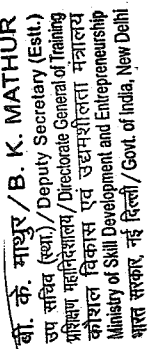 बी. के. माथुर/B. K. MATHUR
उप सचिव (स्था.)/Deputy Secretary (Estt.)
प्रशिक्षण महानिदेशालय/Directorate General of Training
कौशल विकास एवं उद्यमशीलता मंत्रालय
Ministry of Skill Development and Entrepreneurship
भारत सरकार, नई दिल्ली/Govt. of India, New Delhi